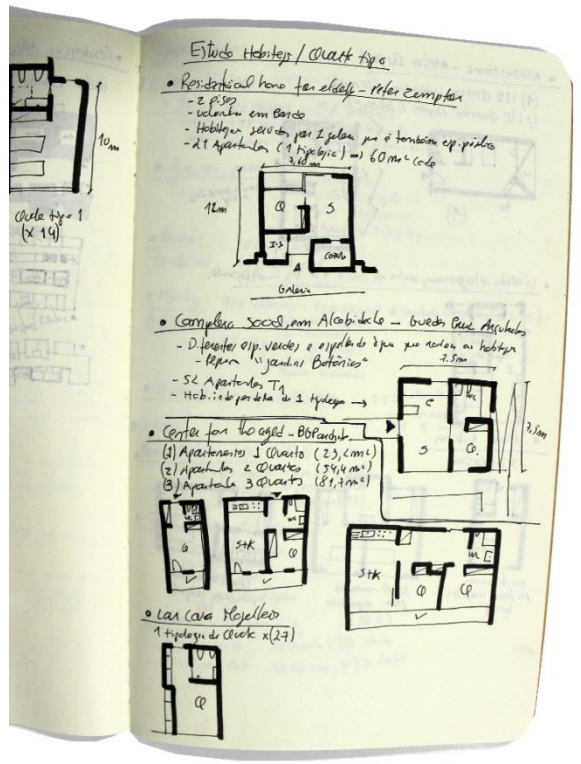 10m
Quarto tipo 1
(x 14)
Estudo Habitação / Quarto tipo
• Residential home for elderly – Peter Zumptor
- 2 pisos
- volumetria em Banda
- Habitações servidas por 1 galeria que é também esp. público
- 21 Apartamentos (1 tipologia) => 60m² cada
7,60m
12m
Q
S
I.S
Cozinha
Galeria
• Complexo Social em Alcabideche – Guedes Cruz Arquitectos
- Diferentes esp. verdes e de água que as habitações
"Jardins Botânico"
- 52 Apartamentos T1
- Hab. independentes de 1 tipologia →
7.5m
7,5m
C
WC
S
Q
• Center for the aged –
(1) Apartamentos 1 Quarto (23,2m²)
(2) Apartamentos 2 Quartos (54,4m²)
(3) Apartamento 3 Quartos (81,7m²)
Q
S+K
WC
Q
S+K
WC
Q
Q
• Lar Casa Magalhães
1 tipologia de Quarto x(27)
Q